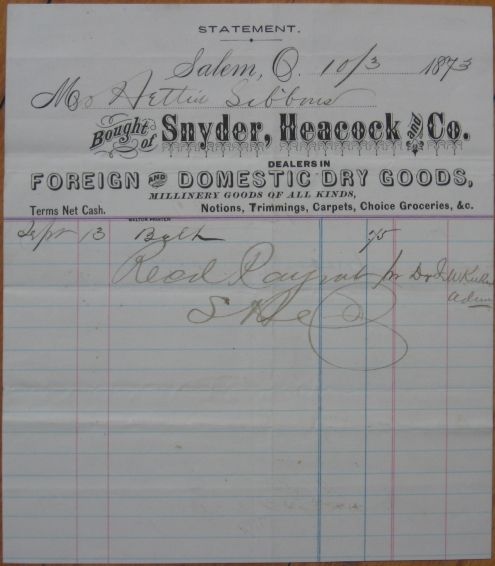 STATEMENT.
Salem, O. 10/3 1873
Mrs Hettie Gibbons
Bought of Snyder, Heacock and Co.
DEALERS IN
FOREIGN AND DOMESTIC DRY GOODS,
MILLINERY GOODS OF ALL KINDS,
Terms Net Cash. Notions, Trimmings, Carpets, Choice Groceries, &c.
WALTON PRINTER
Sept 13 75
Recd Paymt
S H & Co